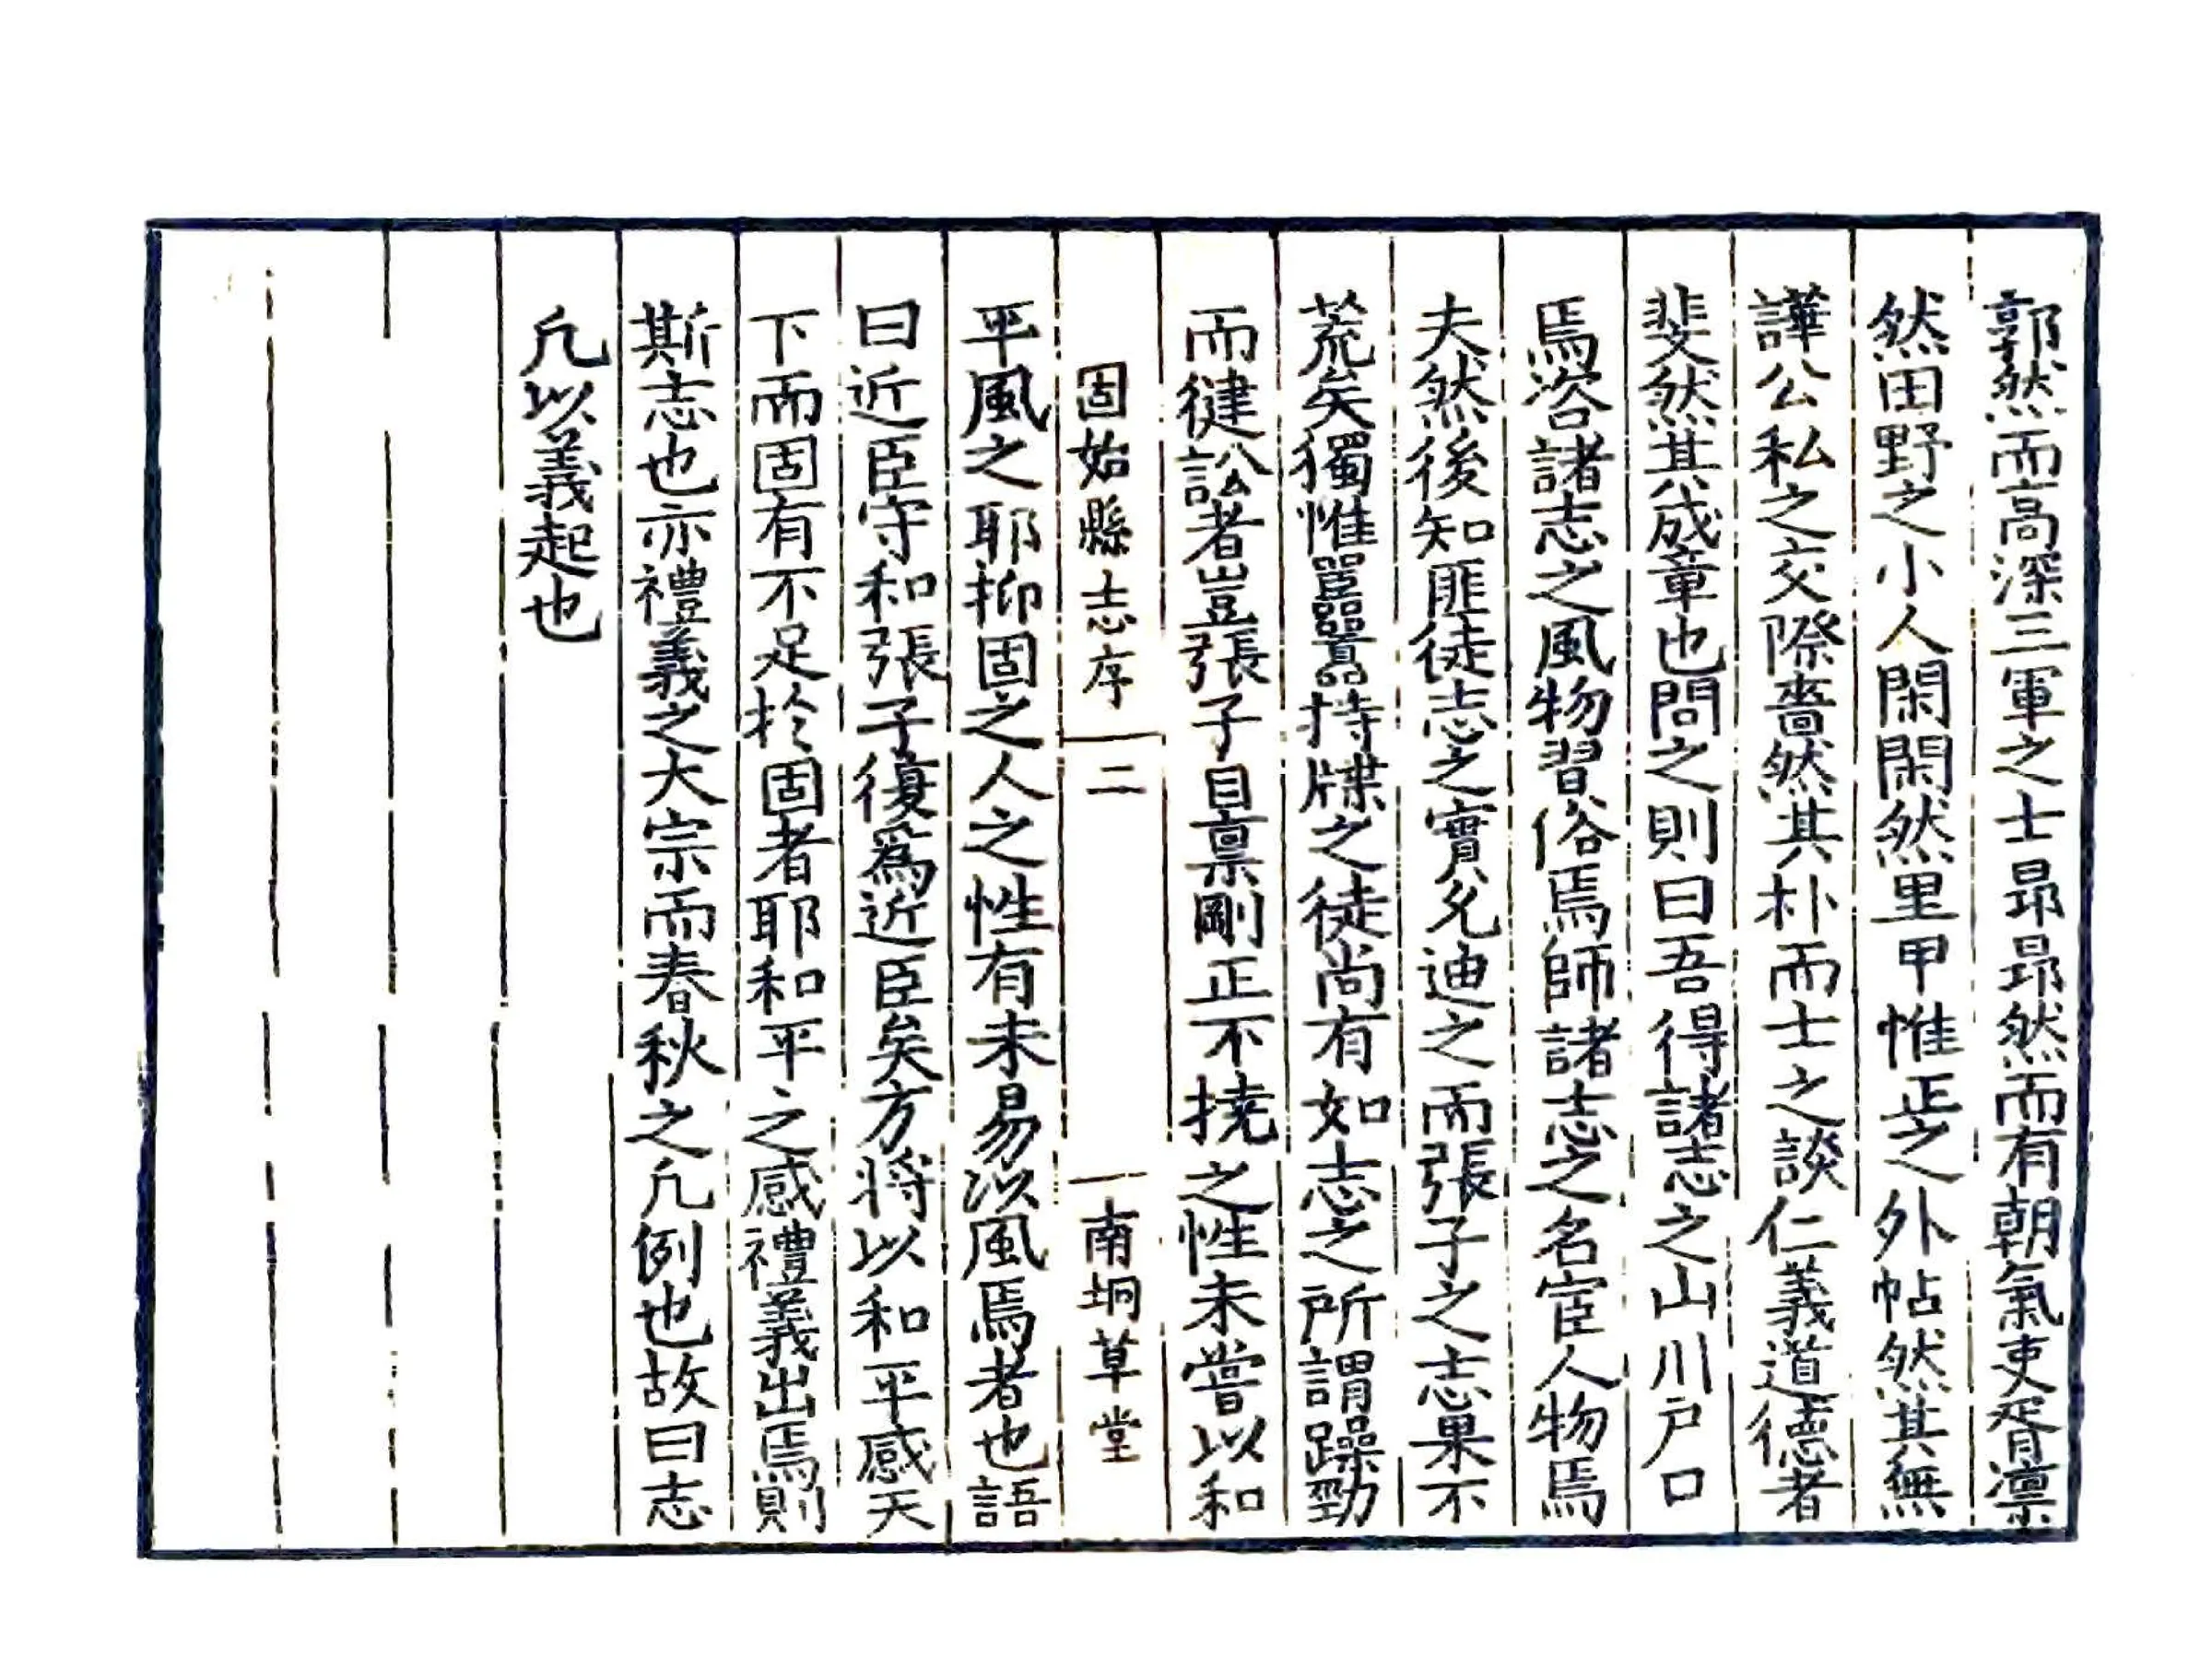 郭然而高深三軍之士昻昻然而有朝氣吏胥凛
然田野之小人閑閑然里甲惟正之外帖然其無
譁公私之交際嗇然其朴而士之談仁義道德者
斐然其成章也問之則曰吾得諸志之山川戶口
焉咨諸志之風物習俗焉師諸志之名宦人物焉
夫然後知匪徒志之實允迪之而張子之志果不
荒矣獨惟嚚囂持牒之徒尚有如志之所謂躁勁
而健訟者豈張子目禀剛正不撓之性未嘗以和
固始縣志序 二 南坰草堂
平風之耶抑固之人之性有未易以風焉者也語
曰近臣守和張子復爲近臣矣方将以和平感天
下而固有不足於固者耶和平之感禮義出焉則
斯志也亦禮義之大宗而春秋之凡例也故曰志
凡以義起也